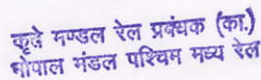 कृते मण्डल रेल प्रबंधक (का.)
भोपाल मंडल पश्चिम मध्य रेल